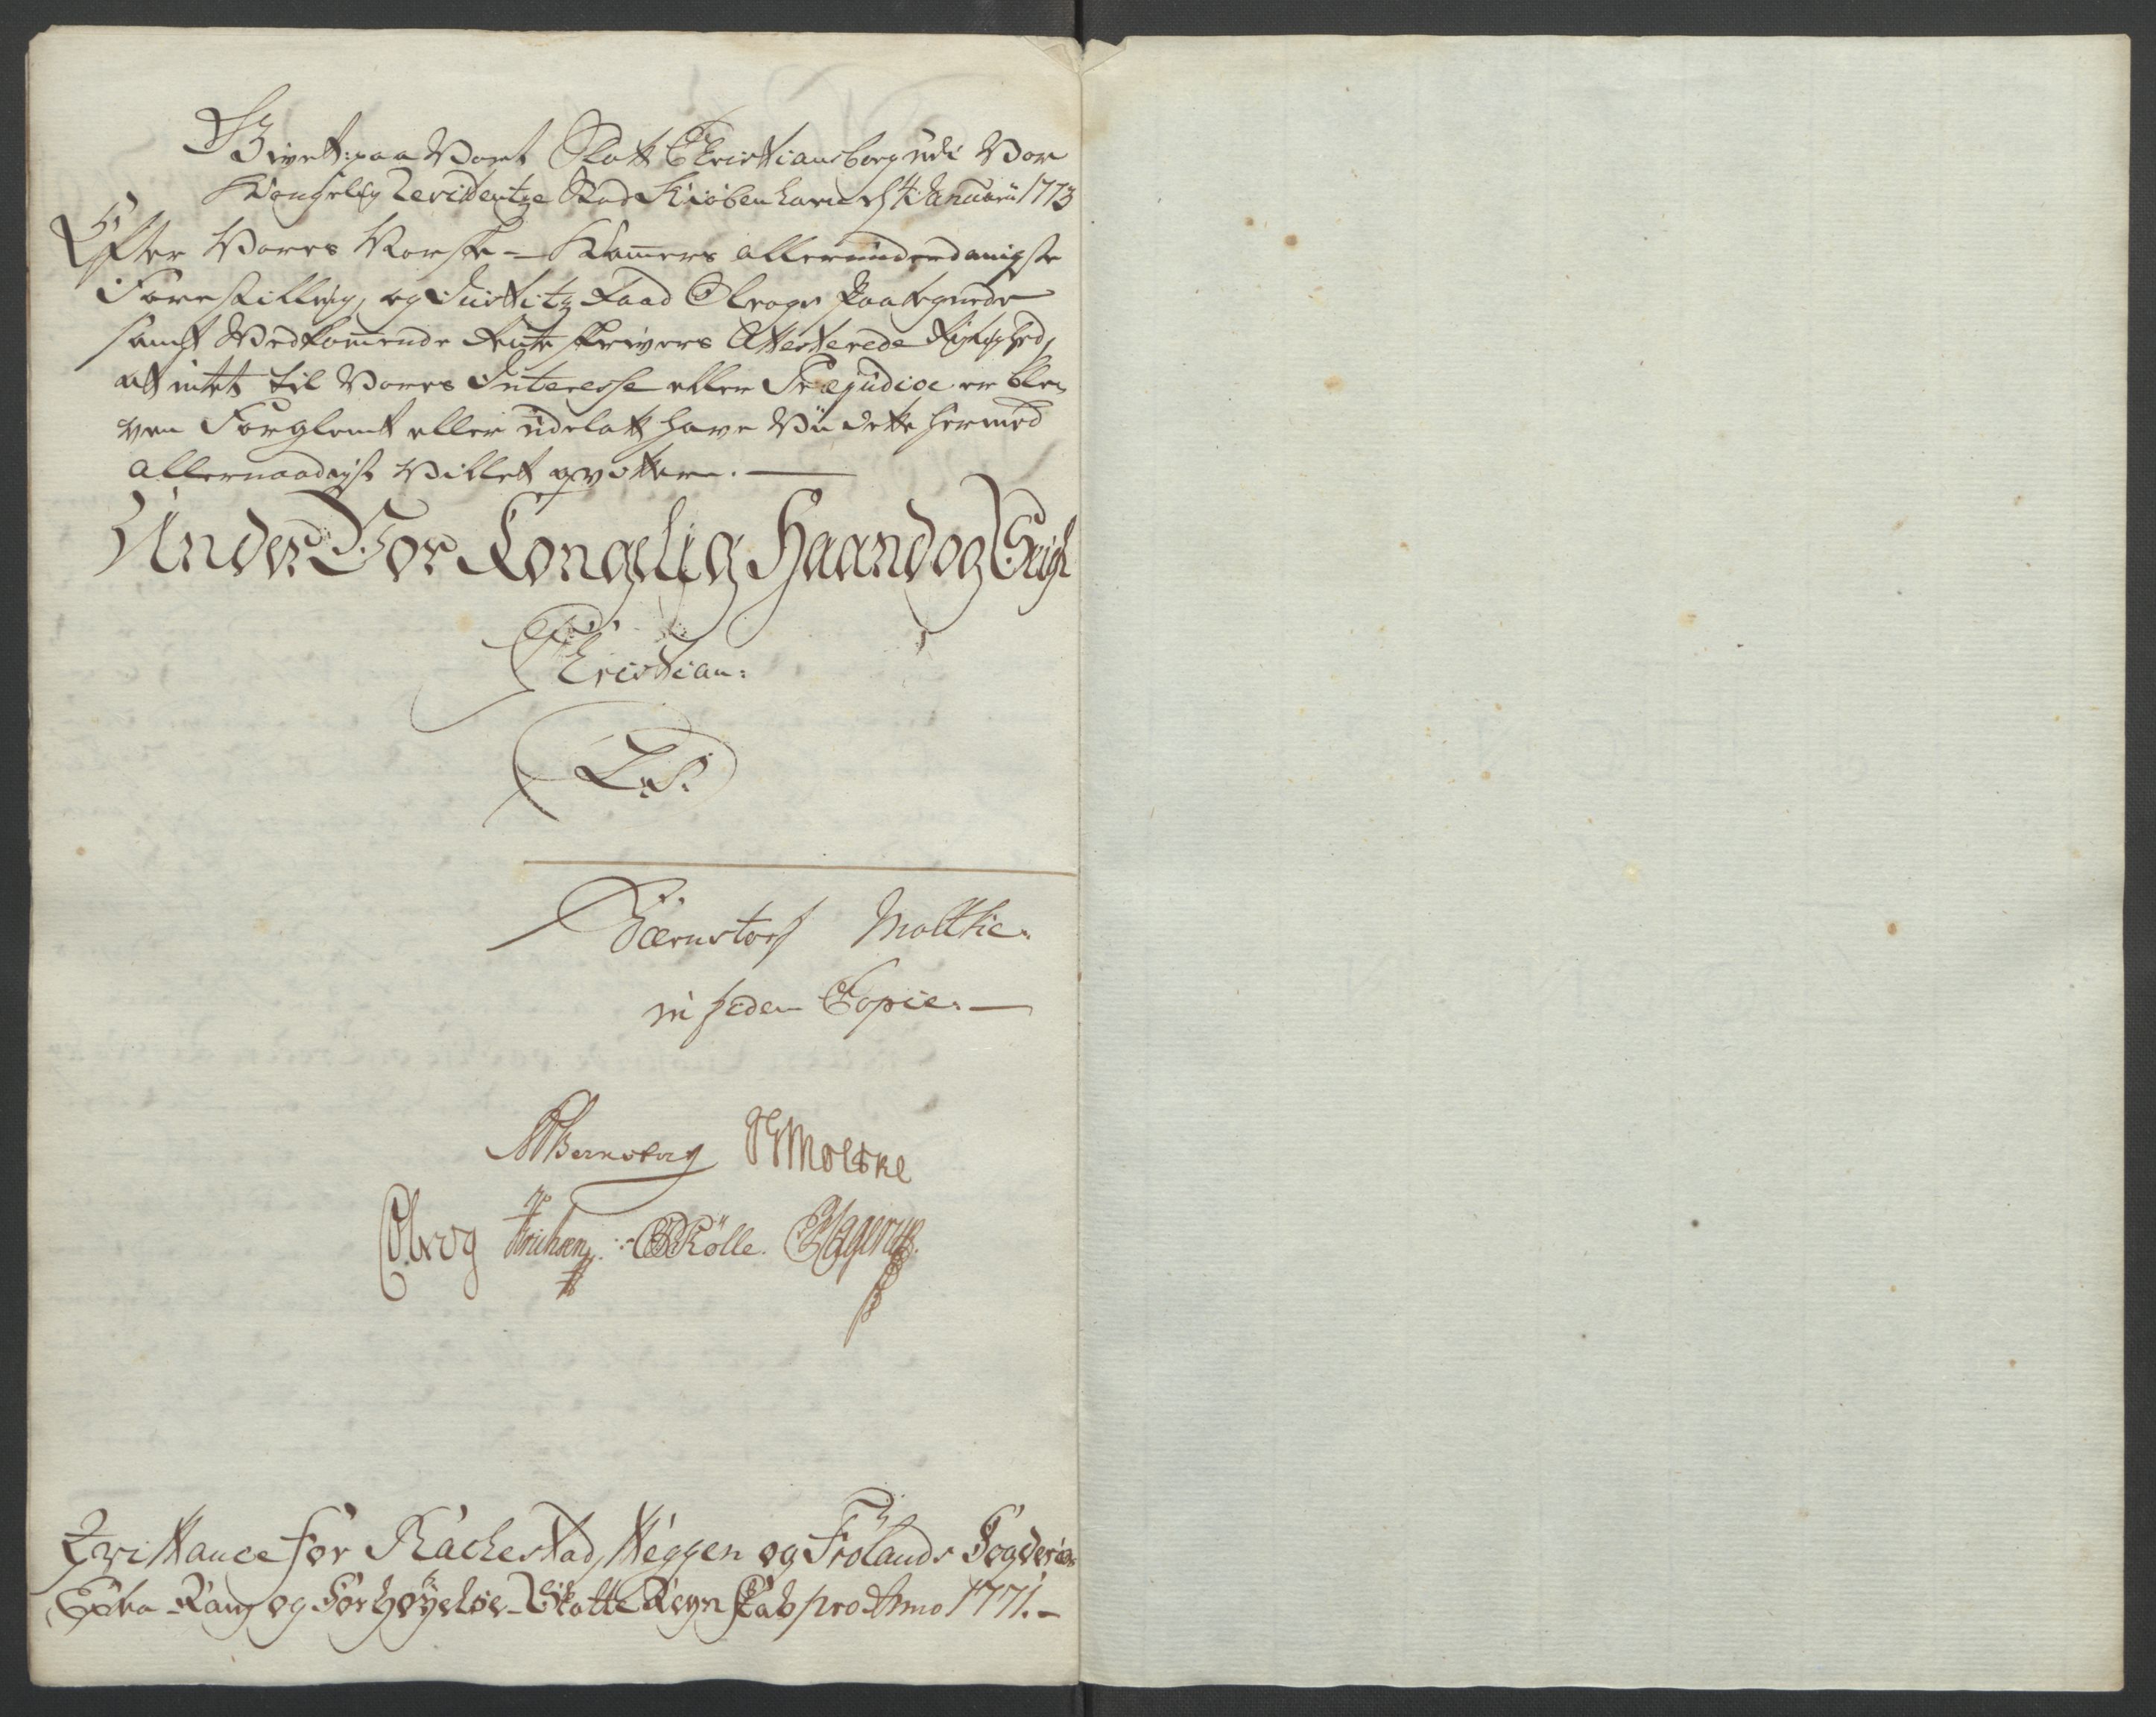 Givet paa Vort Slott Christiansborg udi Vor
Kongelig Residentze Stad Kiøbenhavn d 4 Januarii 1773
Efter Vores Norske-Kamers allerunderdanigste
Forestilling, og Justitz Raad Obrogs paategnede
samt Vedkomende Rente skrivers Attesterede Rigtighed,
at intet til Vores Interesse eller Præjudice er ble-
ven Forglemt eller udelatt have Vii dette hermed
allernaadigst Villet qvittere.
Under Vor Kongelig Haand og Seigl
Christian:
L. S.
Bærnstorf Moltkie.
in fidem Copie.
APBernstorff Moltke
Obrog Erichsen. Rølle. Hagerup.
Qvittance for Rachestad, Heggen og Frølands Fogderies
Extra-Rang og Forhøyelse-Skatte Regnskab pro Anno 1771.